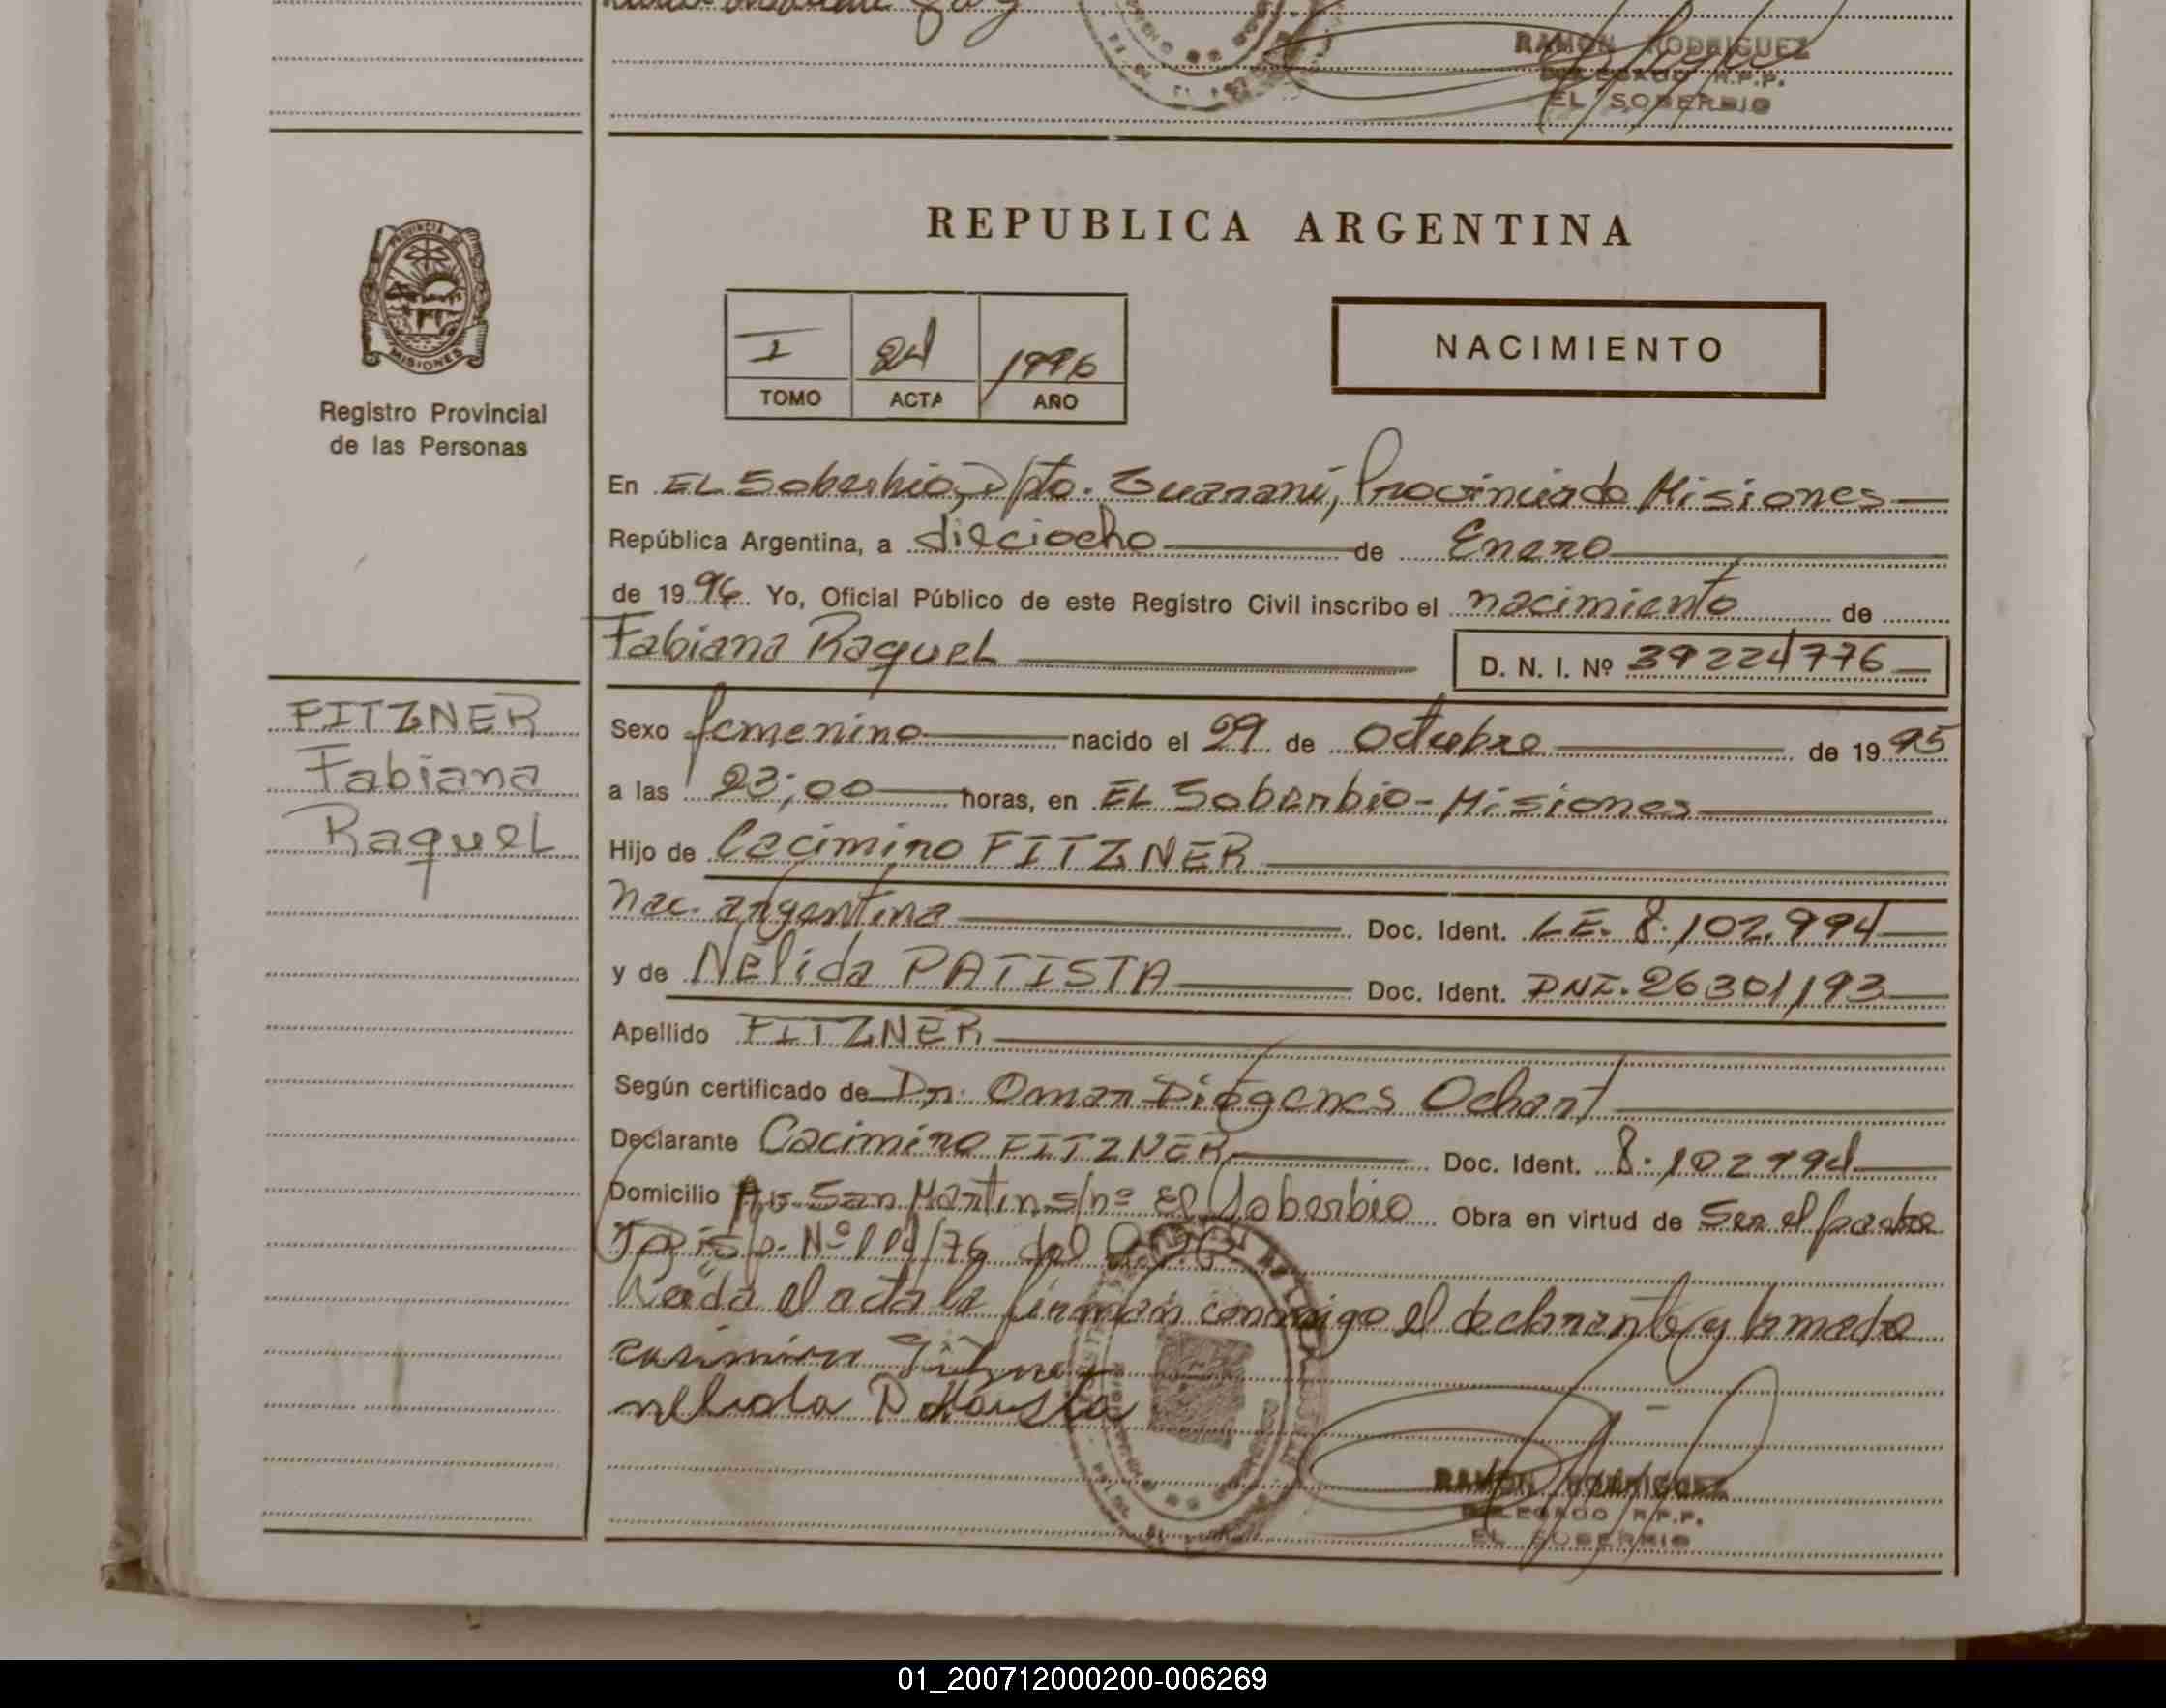 RAMON RODRIGUEZ
DELEGADO R.P.P.
EL SOBERBIO
REPUBLICA ARGENTINA
PROVINCIA DE
MISIONES
Registro Provincial
de las Personas
I 24 1996
TOMO ACTA AÑO
NACIMIENTO
En EL Soberbio, Dpto. Guaraní, Provincia de Misiones
República Argentina, a dieciocho de Enero
de 1996. Yo, Oficial Público de este Registro Civil inscribo el nacimiento de
Fabiana Raquel D. N. I. Nº 39224776
FITZNER
Fabiana
Raquel
Sexo femenino nacido el 29 de Octubre de 1995
a las 23;00 horas, en EL Soberbio - Misiones
Hijo de Cacimiro FITZNER
nac. argentina Doc. Ident. LE. 8.102.994
y de Nélida PATISTA Doc. Ident. DNI. 26301193
Apellido FITZNER
Según certificado de Dr. Omar Diógenes Ochart
Declarante Cacimiro FITZNER Doc. Ident. 8.102994
Domicilio Av. San Martin s/nº El Soberbio Obra en virtud de Ser el padre
Disp. Nº 114/76 del
Leída el acta la firman conmigo el declarante y la madre
RAMON RODRIGUEZ
DELEGADO R.P.P.
EL SOBERBIO
01_200712000200-006269